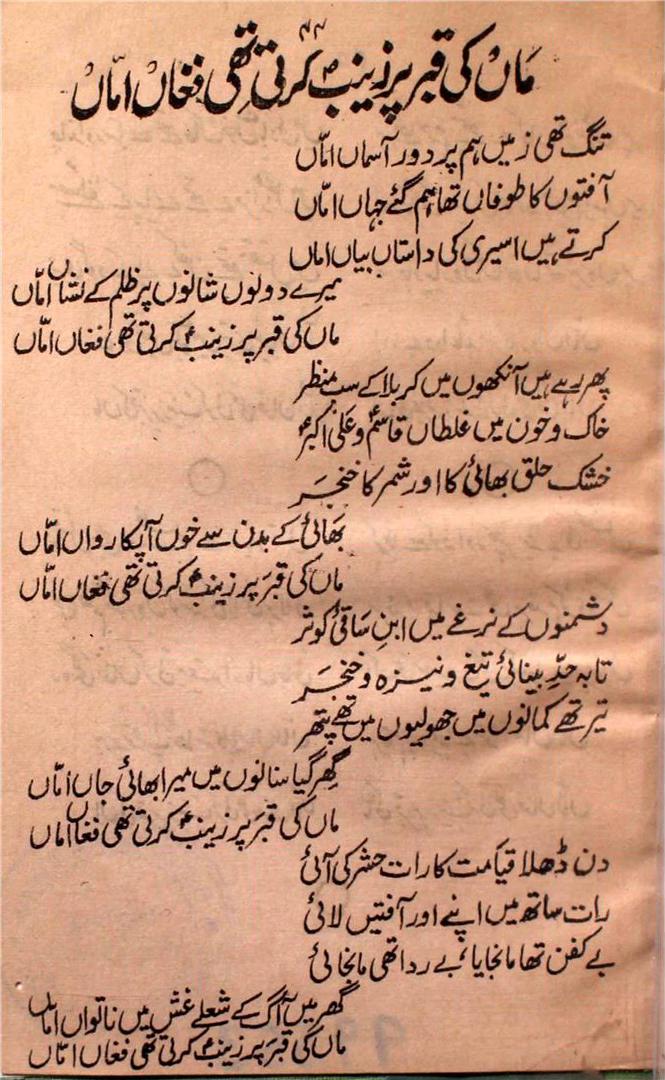 ۴۴
ماں کی قبر پر زینبؑ کرتی تھی فغاں امّاں
تنگ تھی زمیں ہم پر دور آسماں امّاں
آفتوں کا طوفاں تھا، ہم گئے جہاں امّاں
کرتے ہیں اسیری کی داستاں بیاں اماں
میرے دونوں شانوں پر ظلم کے نشاں امّاں
ماں کی قبر پر زینبؑ کرتی تھی فغاں امّاں
پھر رہے ہیں آنکھوں میں کربلا کے سب منظر
خاک و خون میں غلطاں قاسمؑ و علی اکبرؑ
خشک حلق بھائی کا اور شمر کا خنجر
بھائی کے بدن سے خوں آپکا رواں امّاں
ماں کی قبر پر زینبؑ کرتی تھی فغاں امّاں
دشمنوں کے نرغے میں ابنِ ساقیٔ کوثر
تا بہ حدِّ بینائی تیغ و نیزہ و خنجر
تیر تھے کمانوں میں جھولیوں میں تھے پتھر
گِھر گیا سنانوں میں میرا بھائی جاں امّاں
ماں کی قبر پر زینبؑ کرتی تھی فغاں اماں
دن ڈھلا قیامت کا رات حشر کی آئی
رات ساتھ میں اپنے اور آفتیں لائی
بے کفن تھا مانجایا، بے ردا تھی مانجائی
گھر میں آگ کے شعلے غش میں ناتواں امّاں
ماں کی قبر پر زینبؑ کرتی تھی فغاں امّاں